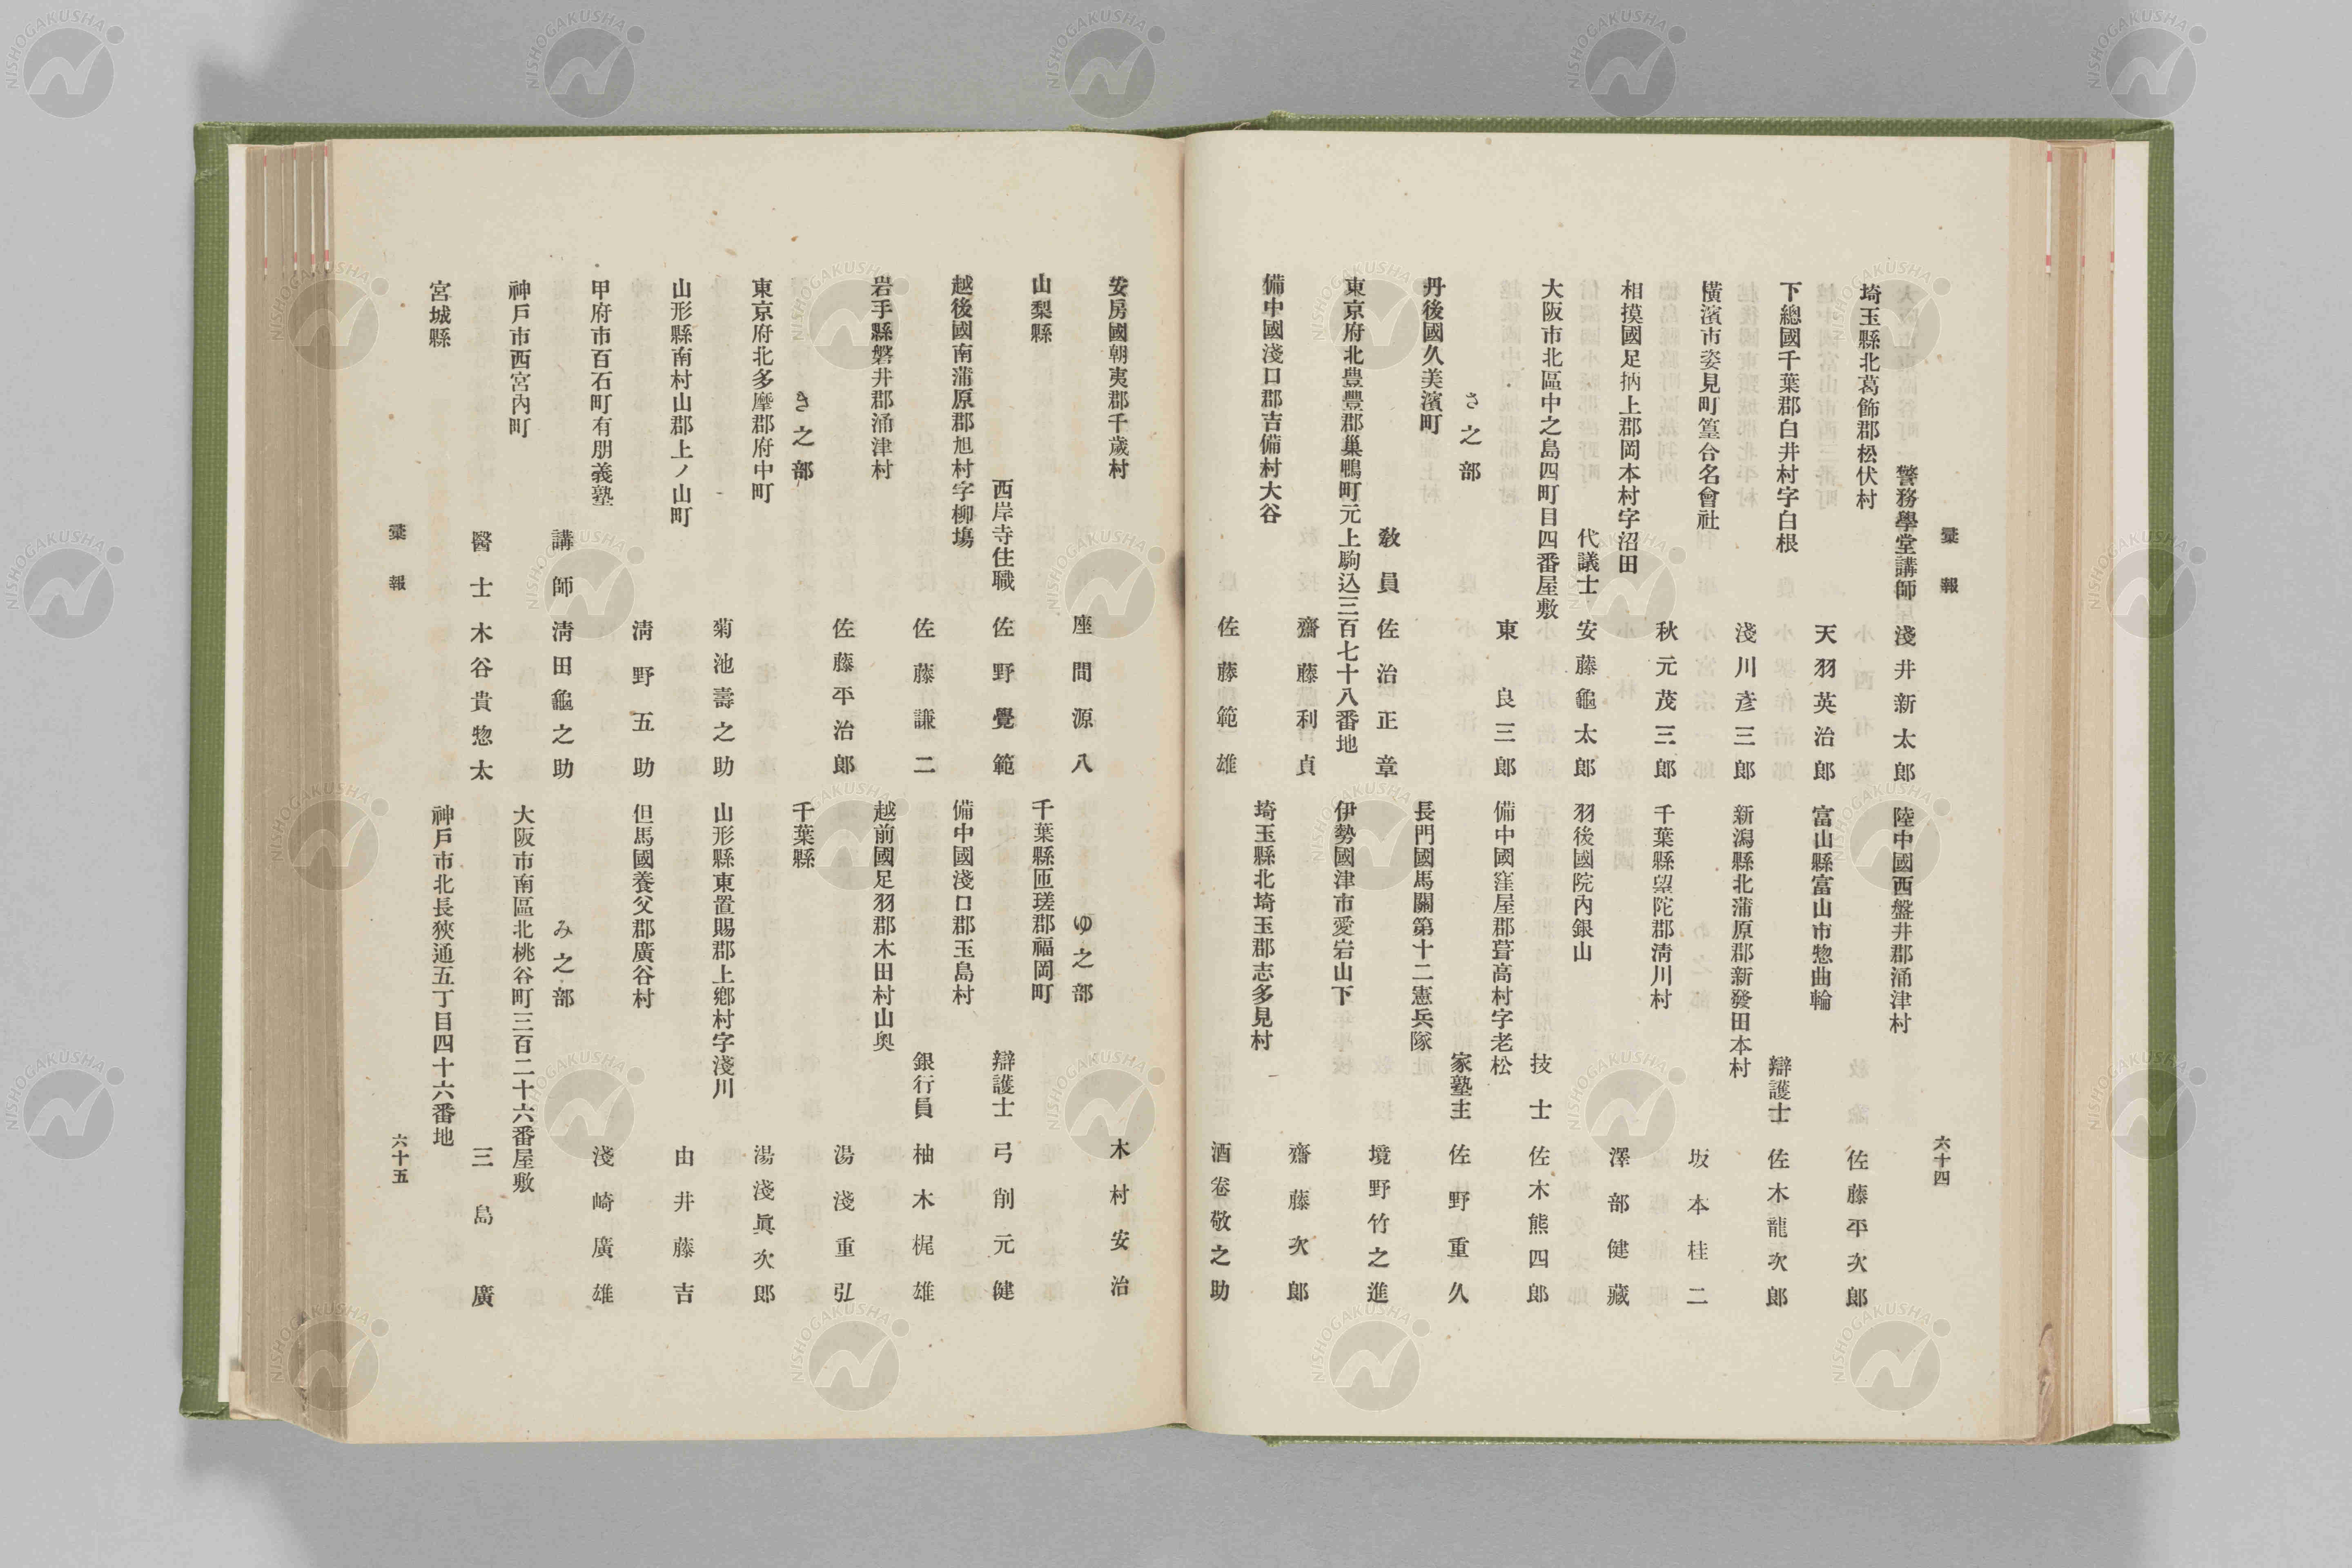 彙報　六十四
警務學堂講師　淺井新太郎
埼玉縣北葛飾郡松伏村
天羽英治郎
下總國千葉郡白井村字白根
淺川彦三郎
橫濱市姿見町篁合名會社
秋元茂三郎
相摸國足抦上郡岡本村字沼田
代議士　安藤龜太郎
大阪市北區中之島四町目四番屋敷
東良三郎
さ之部
丹後國久美濱町
敎員　佐治正章
東京府北豊豐郡巢鴨町元上駒込三百七十八番地
齋藤利貞
備中國淺口郡吉備村大谷
佐藤範雄
陸中國西盤井郡涌津村
佐藤平次郎
富山縣富山市惣曲輪
辯護士　佐木龍次郎
新潟縣北蒲原郡新發田本村
坂本桂二
千葉縣望陀郡淸川村
澤部健藏
羽後國院內銀山
技士　佐木熊四郎
備中國窪屋郡葺高村字老松
家塾主　佐野重久
長門國馬關第十二憲兵隊
境野竹之進
伊勢國津市愛岩山下
齋藤次郎
埼玉縣北埼玉郡志多見村
酒卷敬之助
安房國朝夷郡千歲村
座間源八
山梨縣
西岸寺住職　佐野覺範
越後國南蒲原郡旭村字柳塲
佐藤謙二
岩手縣磐井郡涌津村
佐藤平治郎
き之部
東京府北多摩郡府中町
菊池壽之助
山形縣南村山郡上ノ山町
淸野五助
甲府市百石町有朋義塾
講師　淸田龜之助
神戶市西宮內町
醫士　木谷貴惣太
宮城縣
木村安治
ゆ之部
千葉縣匝瑳郡福岡町
辯護士　弓削元健
備中國淺口郡玉島村
銀行員　柚木梶雄
越前國足羽郡木田村山奧
湯淺重弘
千葉縣
湯淺眞次郎
山形縣東置賜郡上鄕村字淺川
由井藤吉
但馬國養父郡廣谷村
淺崎廣雄
み之部
大阪市南區北桃谷町三百二十六番屋敷
三島廣
神戶市北長狹通五丁目四十六番地
彙報　六十五
NISHOGAKUSHA